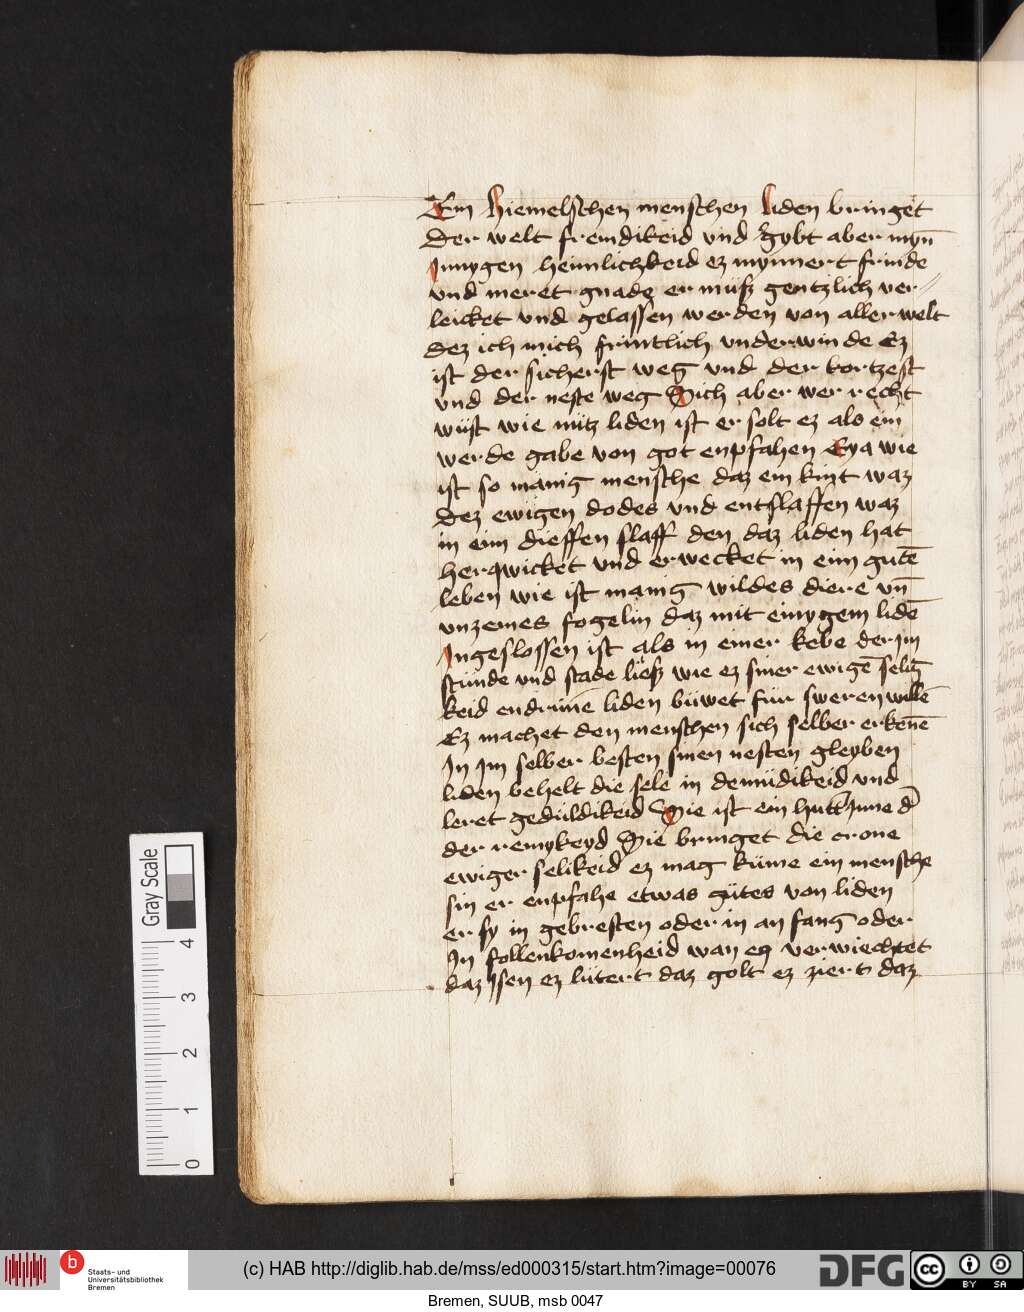 Ein hiemelschen menschen liden bringet
der welt fremdikeid vnd gybt aber myn̄
Jnnygen heimlichkeid ez mynnert frinde
vnd meret gnade er müsz gentzlich ver
leicket vnd gelassen werden von aller welt
dez ich mich frintlich vnderwinde Ez
ist der sicherst weg vnd der kortzest
vnd der neste weg Sich aber wer recht
wüst wie nütz liden ist er solt ez als ein
werde gabe von got enpfahen Eya wie
ist so manig mensche daz ein kint waz
dez ewigen dodes vnd entslaffen waz
in eim dieffen slaff den daz liden hat
herqwicket vnd erwecket in eim gutē
leben wie ist manig wildes diere vn̄
vnzemes fogelin daz mit einygem lidē
Jngeslossen ist als in einer kebe der im
stunde vnd stade liesz wie ez siner ewigē selig
keid endrūne liden büwet für sweren willē
Ez machet den menschen sich selber erkenē
Jn im selber besten sinen nesten gleyben
liden behelt die sele in demüdikeid vnd
leret gedüldikeid Sie ist ein hutterinne d̄
der reinykeyd Sie bringet die crone
ewiger selikeid ez mag küme ein mensche
sin er enpfahe etwas gütes von liden
er sy in gebresten oder in an fang oder
Jn follenkomenheid wan ez verwiechtet
daz Jsen ez lütert daz golt ez ziert daz
Gray Scale
4
3
2
1
0
b
Staats- und
Universitätsbibliothek
Bremen
(c) HAB http://diglib.hab.de/mss/ed000315/start.htm?image=00076
DFG
cc
BY SA
Bremen, SUUB, msb 0047